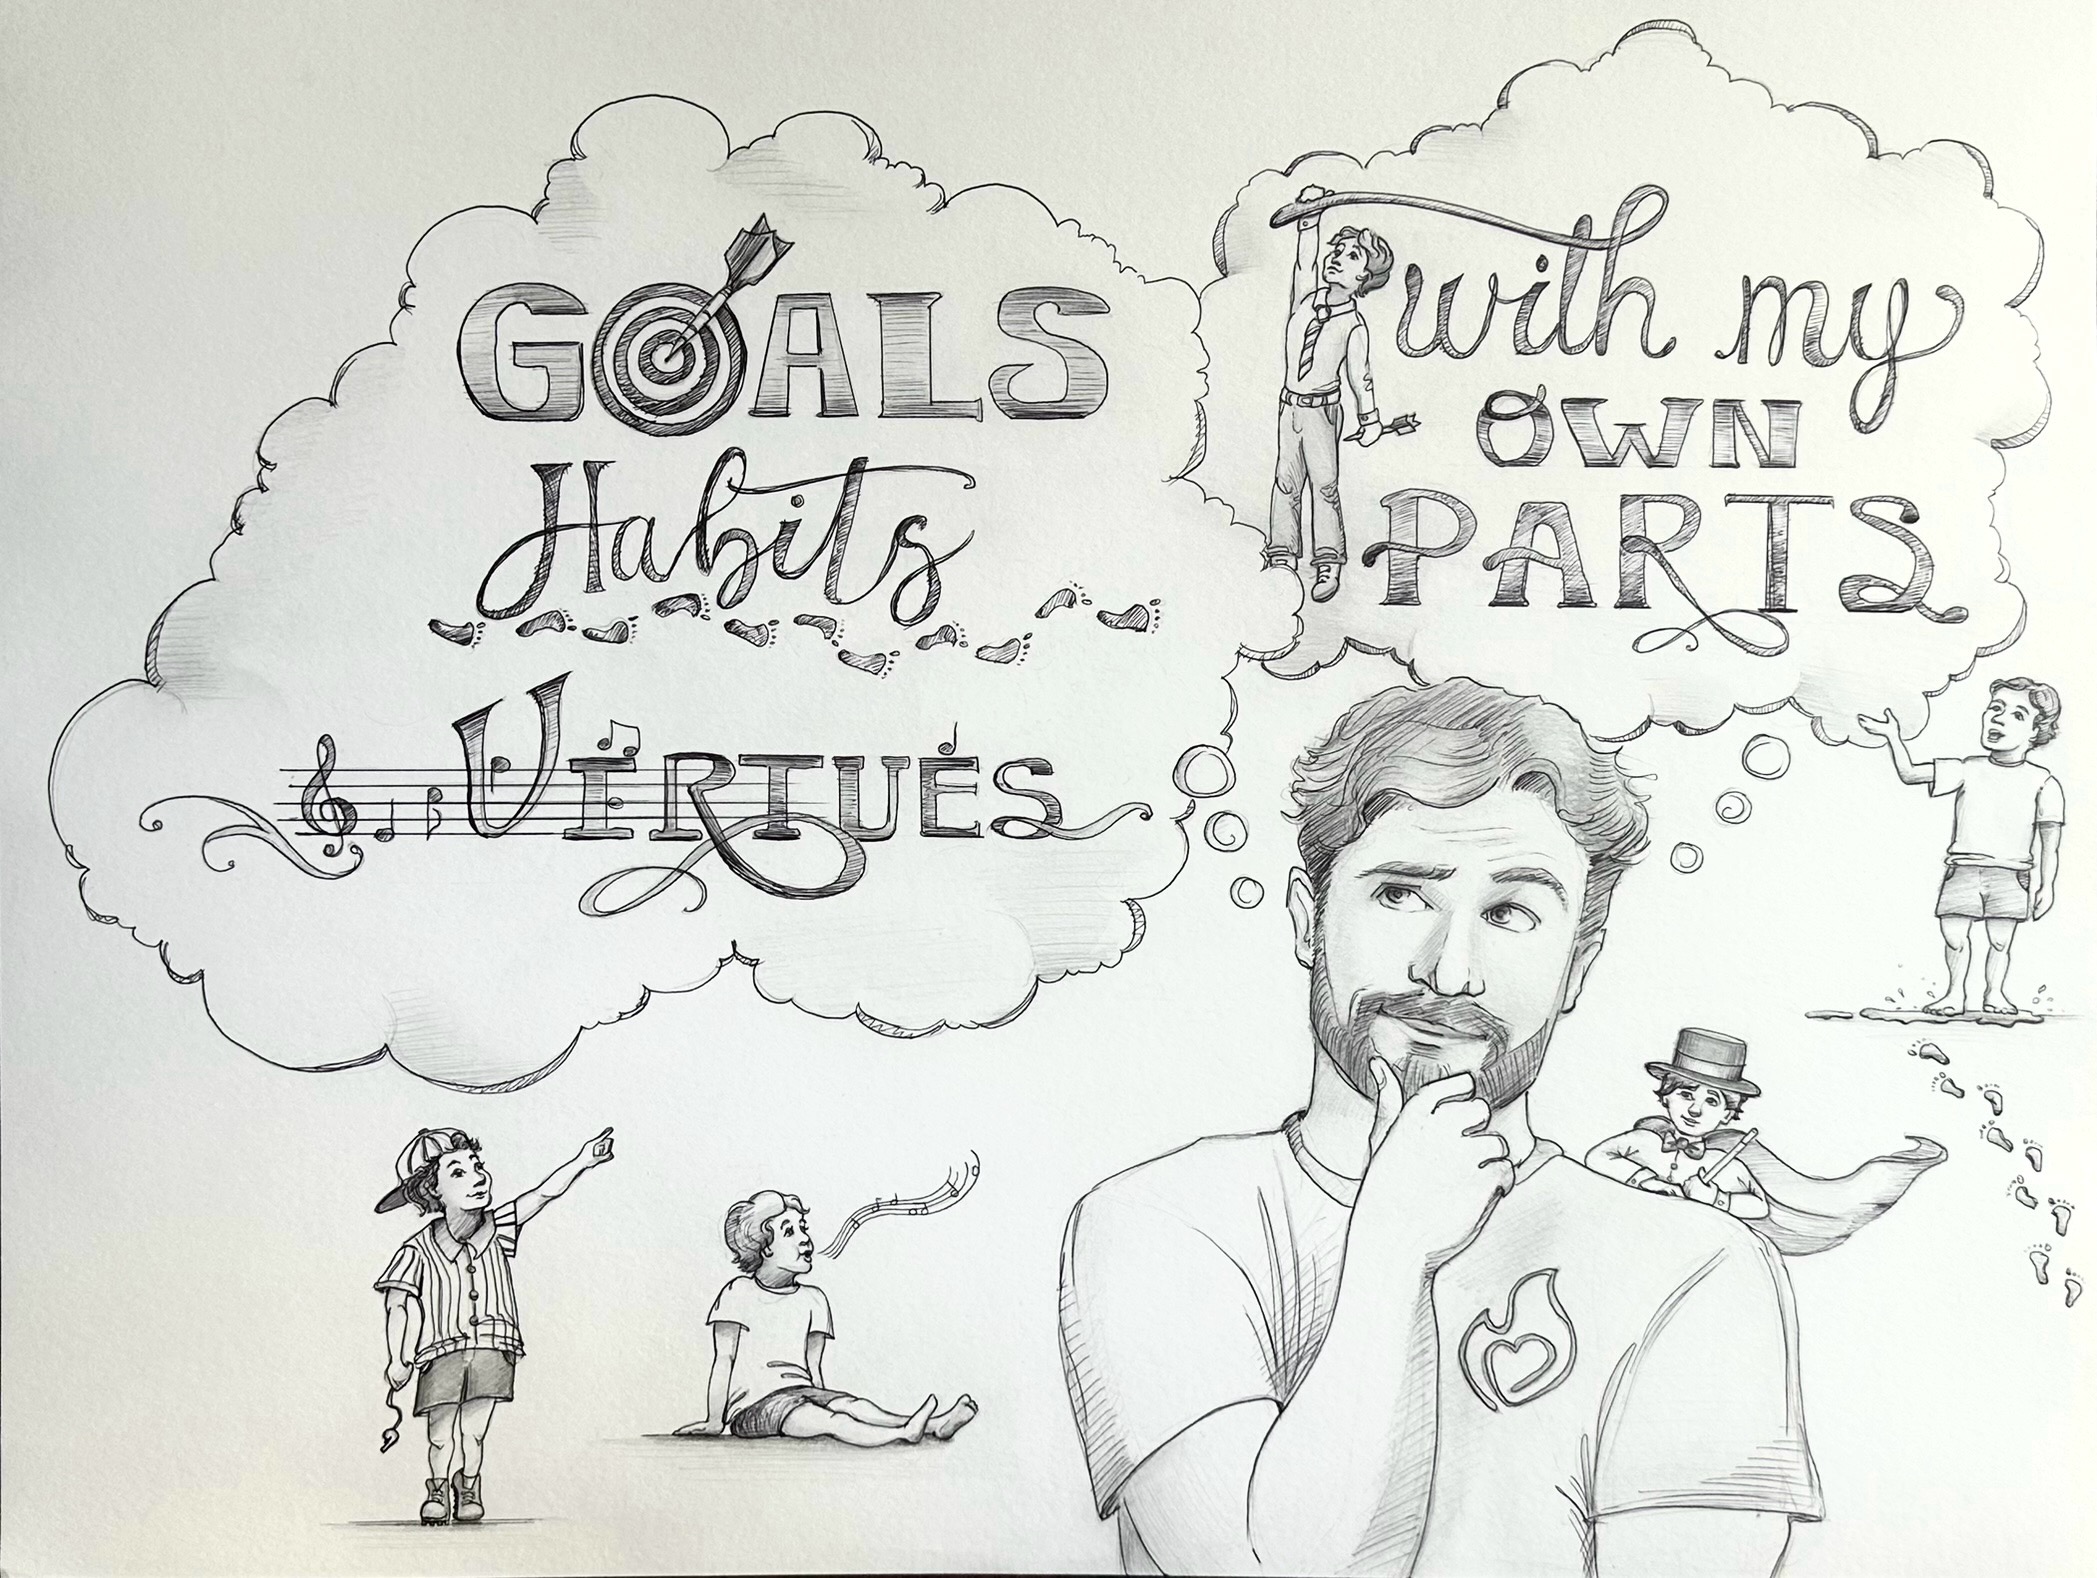 GOALS
Habits
VIRTUES
with my
OWN
PARTS